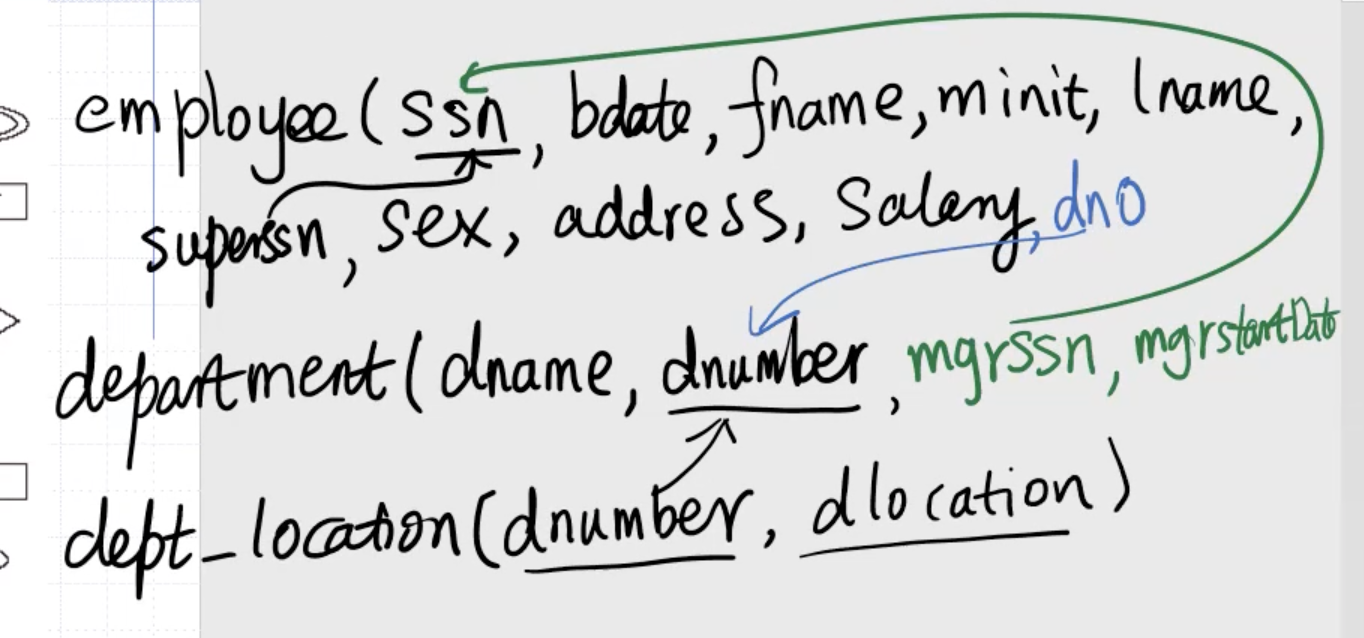 employee(ssn, bdate, fname, minit, lname,
superssn, sex, address, salary, dno
department(dname, dnumber, mgrssn, mgrstartDate
dept_location(dnumber, dlocation)